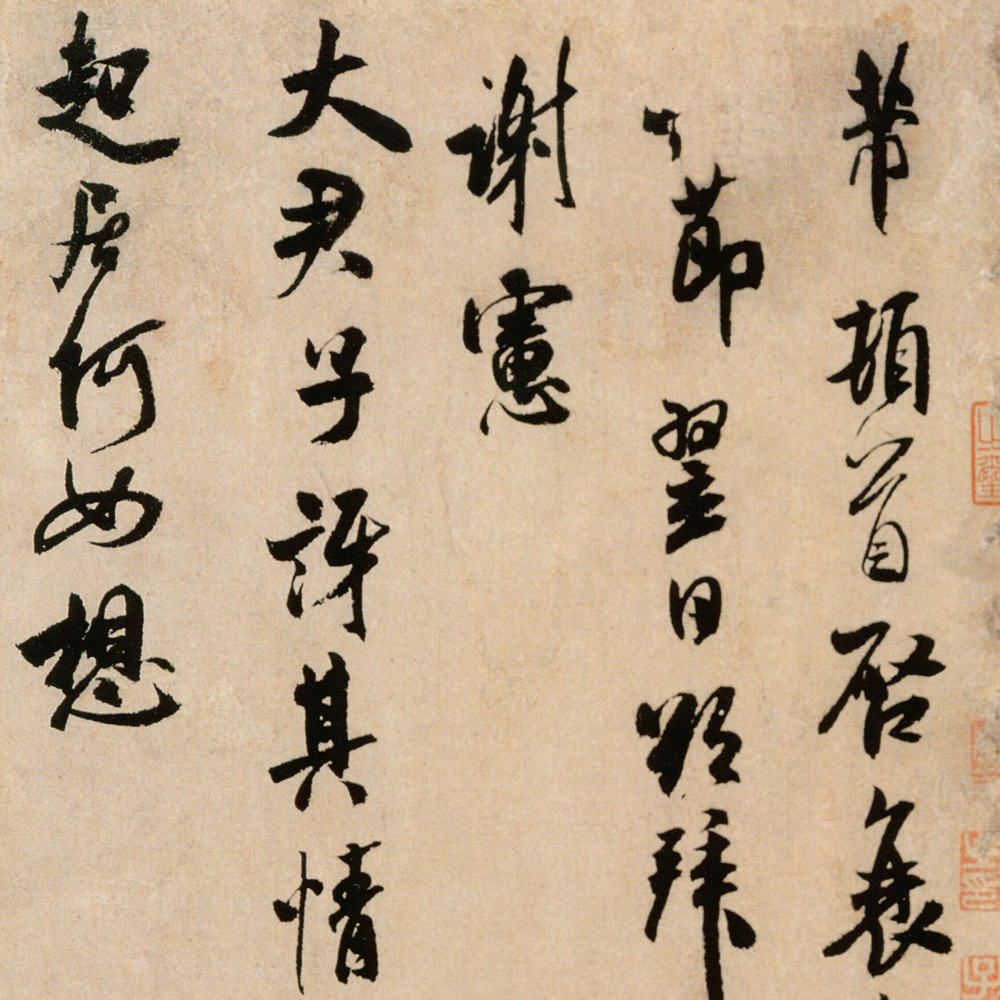 芾頓首啓衰
節翌日拜
謝憲
大君子訝其情
起居何如想